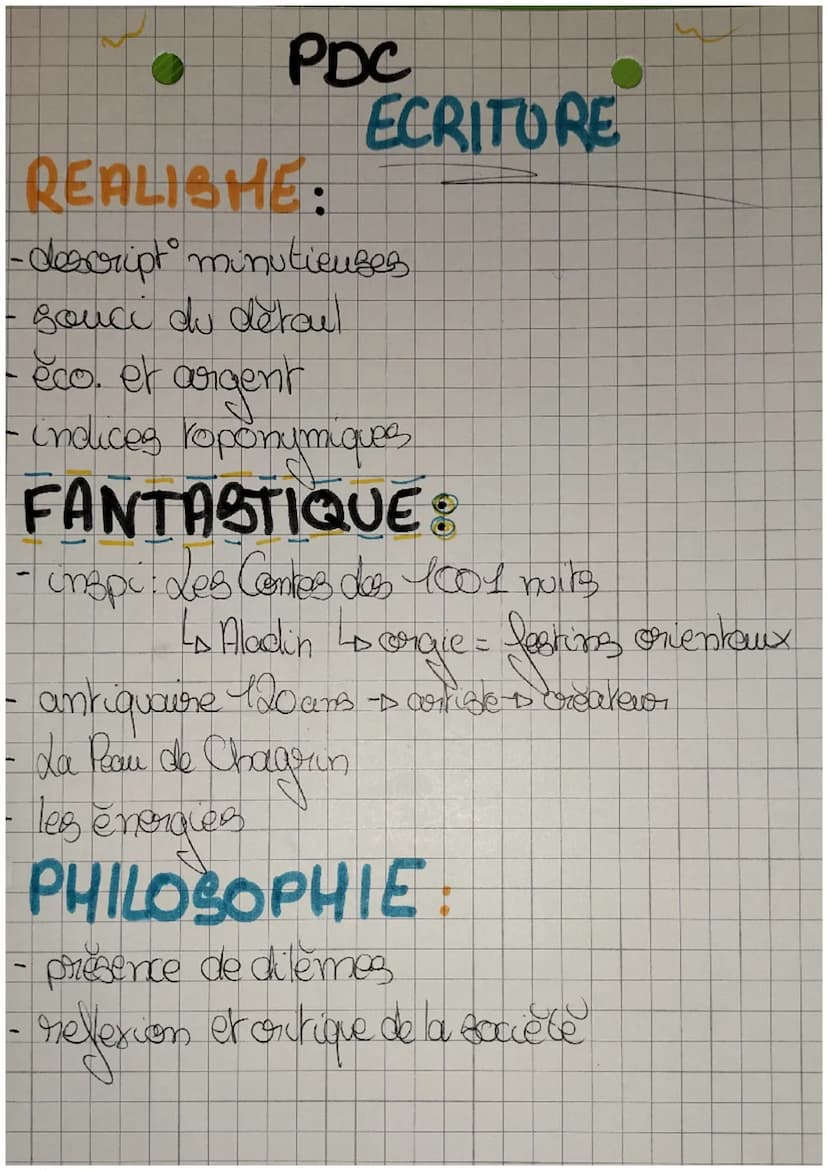 PDC
ECRITURE
REALISME :
- descript° minutieuses
- souci du détail
- éco. et argent
- indices toponymiques
FANTASTIQUE :
- inspi : Les Contes des 1001 nuits
↳ Aladin ↳ orgie = festins orientaux
- antiquaire 120 ans → artiste → créateur
- La Peau de Chagrin
- les énergies
PHILOSOPHIE :
- présence de dilèmes
- reflexion et critique de la société